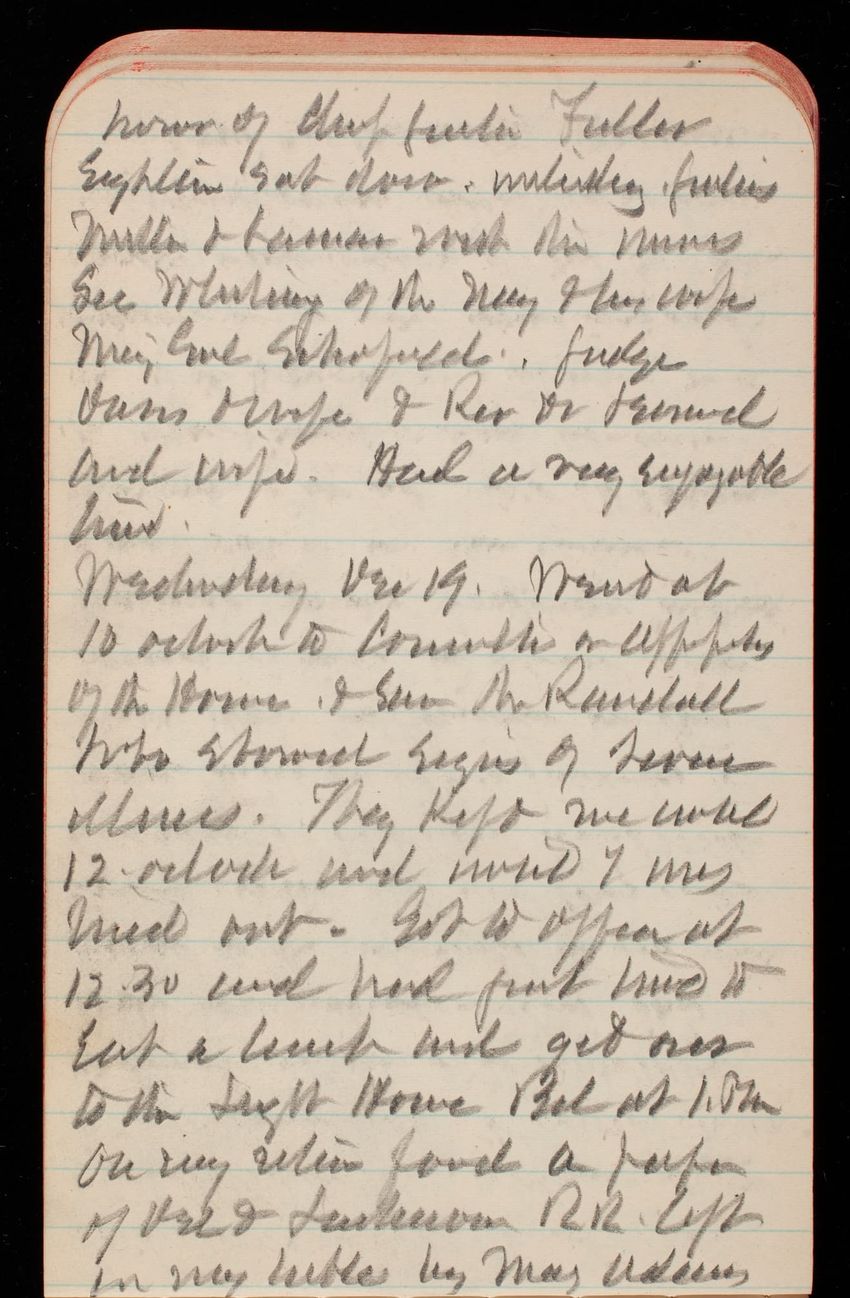 honor of Chief Justice Fuller
Eighteen sat down. including Justices
Miller & Lamar with their wives
Sec Whitney of the Navy & his wife
Maj Genl Schofield. Judge
Davis & wife & Rev Dr
and wife. Had a very enjoyable
time.
Wednesday Dec 19. Went at
10 oclock to Committee on App
of the House & saw Mr Randall
who showed signs of severe
illness. They kept me until
12 oclock and until I was
tired out. Got to office at
12.30 and had just time to
Eat a lunch and get over
to the Light House Bd at 1. Pm
On my return found a paper
of Del & R.R. left
on my table by Maj Adams